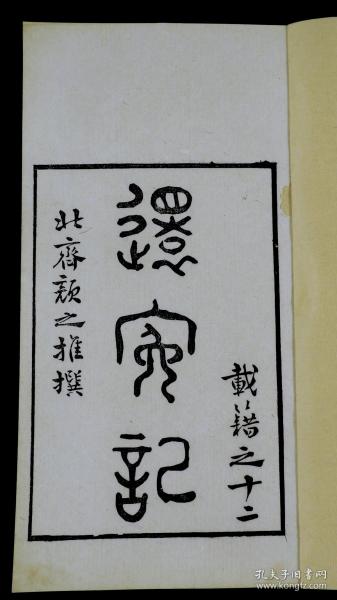 載籍之十二
還冤記
北齊顏之推撰
孔夫子旧书网
www.kongfz.com